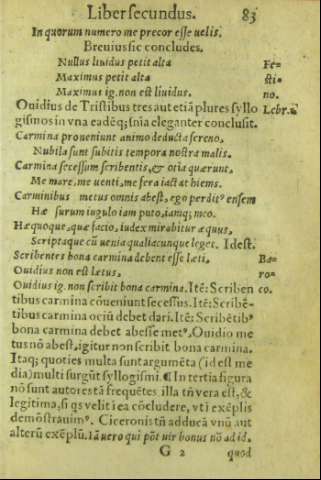 Liber secundus. 83
In quorum numero me precor esse uelis.
Breuius sic concludes.
Nullus liuidus petit alta Fe=
Maximus petit alta sti=
Maximus ig. non est liuidus. no.
Ouidius de Tristibus tres aut etiā plures syllo Lebr.
gismos in vna eadēq; snīa eleganter conclusit.
Carmina proueniunt animo deducta sereno,
Nubila sunt subitis tempora nostra malis.
Carmina secessum scribentis, & otia quærunt,
Me mare, me uenti, me fera iactat hiems.
Carminibus metus omnis abest, ego perditꝰ ensem
Hæ surum iugulo iam puto, iamq; meo.
Hæc quoque, quæ facio, iudex mirabitur æquus,
Scriptaque cū uenia qualiacunque leget. Id est.
Scribentes bona carmina debent esse læti. Ba=
Ouidius non est letus, ro=
Ouidius ig. non scribit bona carmina. Itē: Scriben co.
tibus carmina cōueniunt secessus. Itē: Scribē-
tibus carmina ociū debet dari. Itē: Scribētibꝰ
bona carmina debet abesse metꝰ. Ouidio me
tus nō abest, igitur non scribit bona carmina.
Itaq; quoties multa sunt argumēta (id est me
dia) multi surgūt syllogismi. ¶ In tertia figura
nō sunt autores tā frequētes illa tñ vera est, &
legitima, si qs velit i ea cōcludere, vti exēplis
demōstrauimꝰ. Ciceronis tñ adducā vnū aut
alterū exēplū. Iā uero qui pōt uir bonus nō ad id.
G 2 quod